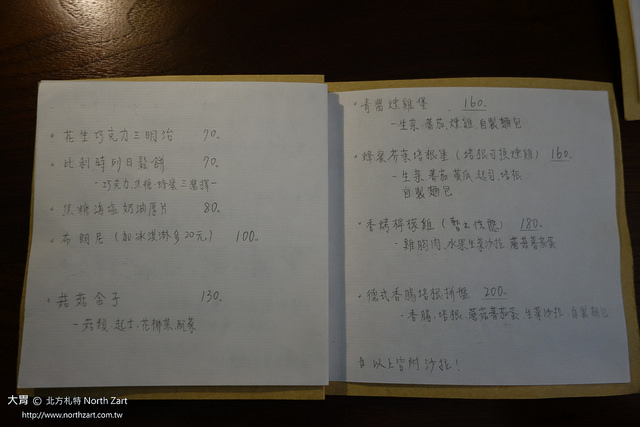 花生巧克力三明治 70.
比利時列日鬆餅 70.
-巧克力.焦糖.蜂蜜三選擇-
焦糖海鹽奶油厚片 80.
布朗尼(加冰淇淋多20元) 100.
菇菇盒子 130.
-菇類.起士.花椰菜.配菜
青醬燻雞堡 160.
-生菜.蕃茄.燻雞.自製麵包
蜂蜜芥茉培根堡(培根可換燻雞) 160.
-生菜.蕃茄.黃瓜.起司.培根.
自製麵包
香烤檸檬雞(暫停供應) 180.
-雞胸肉.水果生菜沙拉.蘑菇蕃茄蛋
德式香腸培根拼盤 200.
-香腸.培根.蘑菇蕃茄蛋.生菜沙拉.自製麵包
以上皆附沙拉!
大胃 © 北方札特 North Zart
http://www.northzart.com.tw